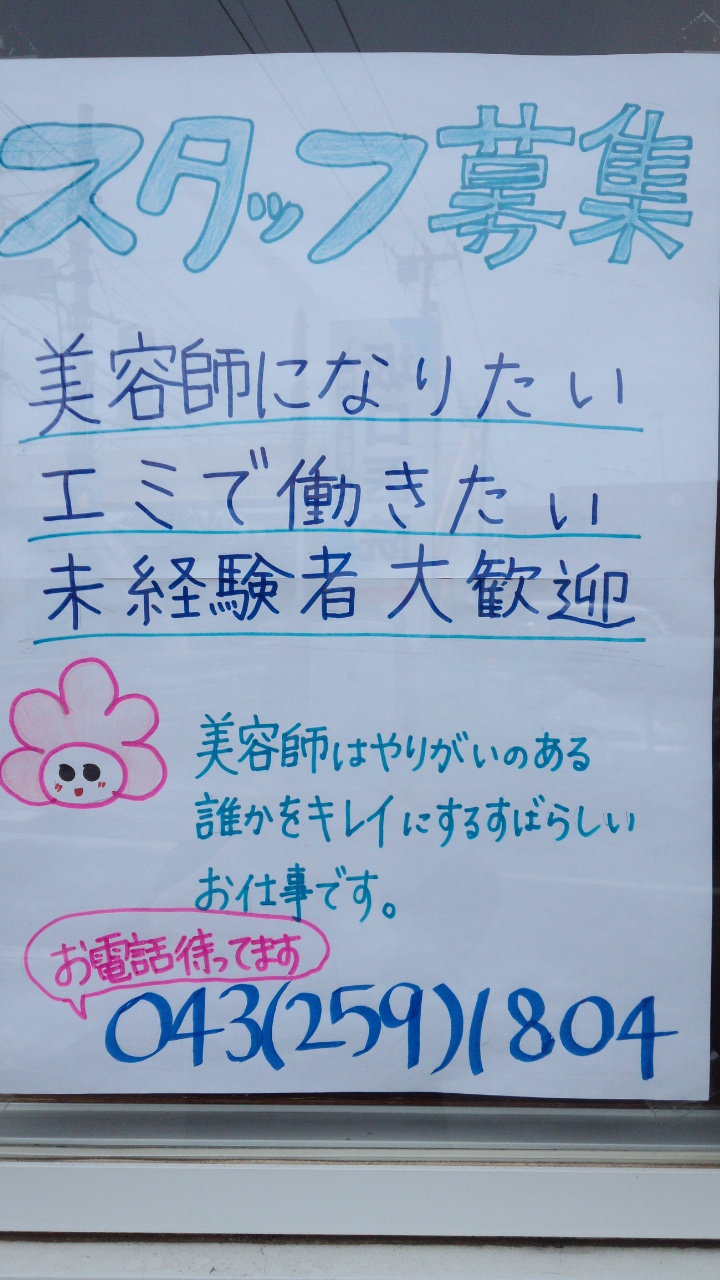 スタッフ募集
美容師になりたい
エミで働きたい
未経験者大歓迎
美容師はやりがいのある
誰かをキレイにするすばらしい
お仕事です。
お電話待ってます
043(259)1804